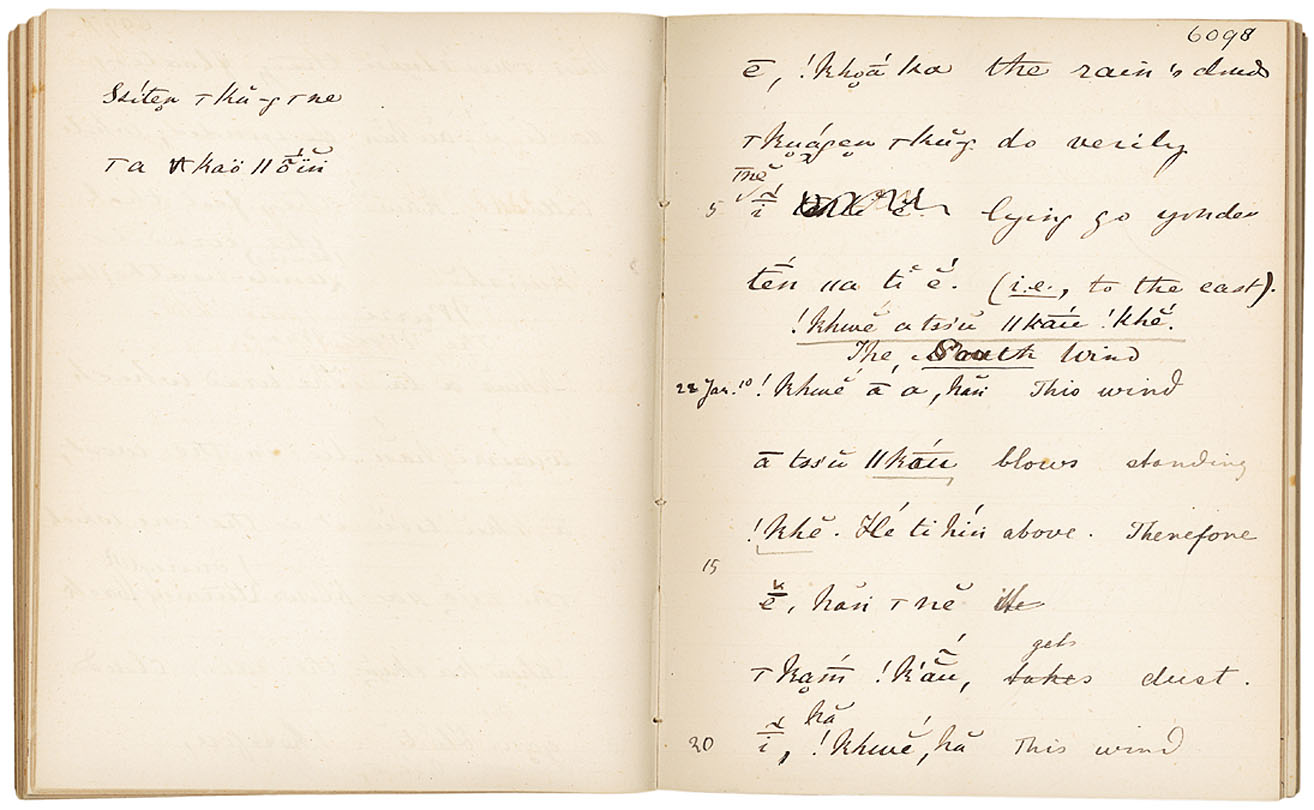 Ssíten̥ ⊤kŭ-g ⊤ne
⊤a kaö ǁṓïn̆
6098
ē, !kho̥ā́ ka the rain's clouds
⊤ku̥ágen̥ ⊤kŭg do verily
⊤nĕ
5 lying go yonder
tḗn ǁa tĭ ĕ́. (i.e., to the east).
!khwĕ́ a tss'ŭ ǁkā́u !khĕ́.
The South Wind
28 Jan. 10 !khwĕ́ ā́ a, hăṅ This wind
ā tss'ŭ ǁkā́u blows standing
!khĕ. Hé ti hiṅ above. Therefore
15
ĕ, hăṅ ⊤nĕ
gets
⊤kḁḿ !k'ắu, takes dust.
hă
20 ī, !khwĕ́, hă This wind